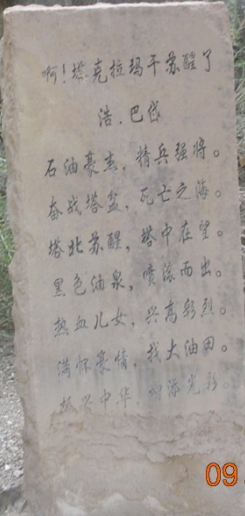 啊！塔克拉玛干苏醒了
浩.巴岱
石油豪杰，精兵强将。
奋战塔盆，死亡之海。
塔北苏醒，塔中在望。
黑色油泉，喷涌而出。
热血儿女，兴高彩烈。
满怀豪情，找大油田。
振兴中华，
09